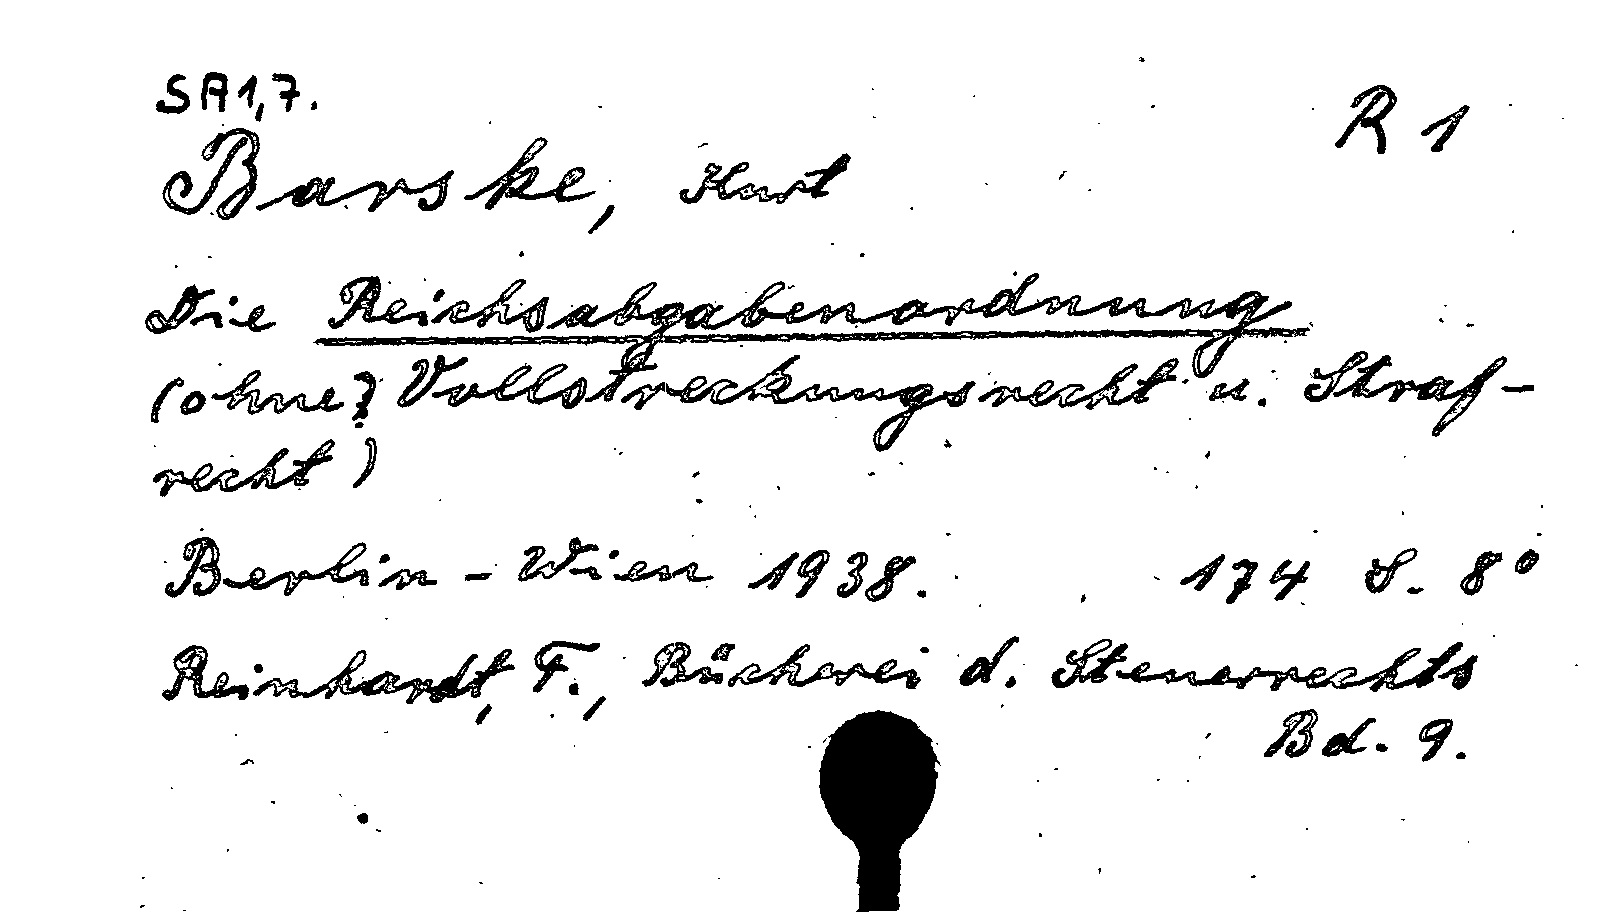 SA1,7.
R 1
Barske, Kurt
Die Reichsabgabenordnung
(ohne? Vollstreckungsrecht u. Straf-
recht)
Berlin - Wien 1938. 174 S. 8°
Reinhardt, F., Bücherei d. Steuerrechts
Bd. 9.